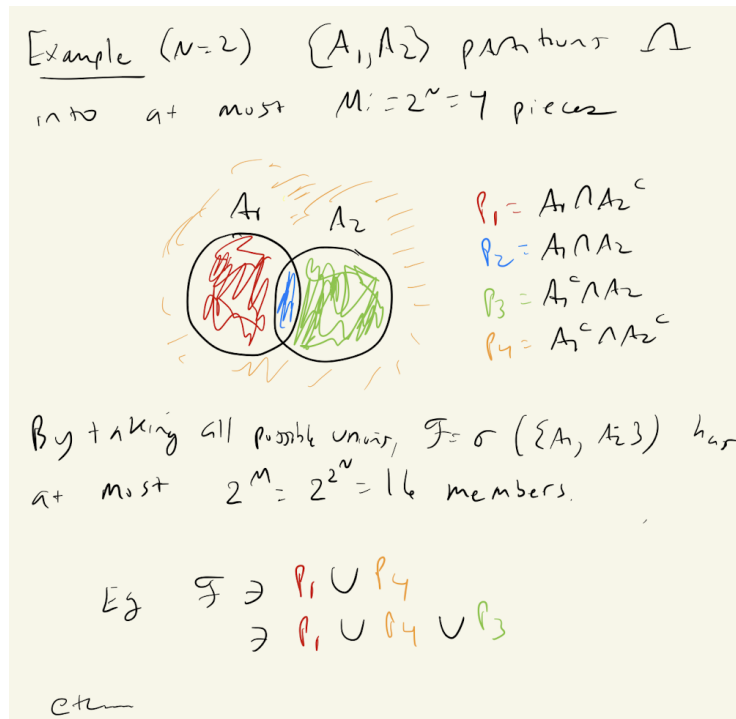 Example (N=2) {A₁, A₂} partitions Ω
into at most M:=2^N=4 pieces
A₁ A₂
P₁ = A₁ ∩ A₂^c
P₂ = A₁ ∩ A₂
P₃ = A₁^c ∩ A₂
P₄ = A₁^c ∩ A₂^c
By taking all possible unions, F = σ({A₁, A₂}) has
at most 2^M = 2^2^N = 16 members.
Eg F ∋ P₁ ∪ P₄
∋ P₁ ∪ P₄ ∪ P₃
etc